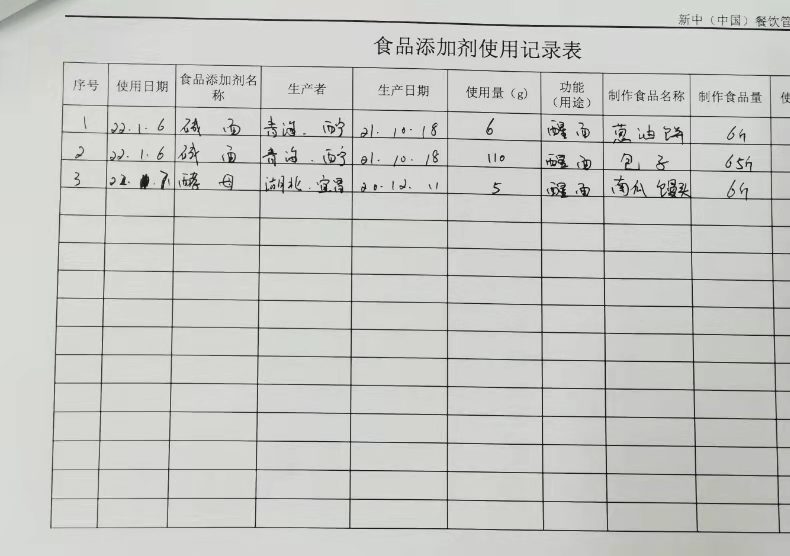 新中（中国）餐饮管
食品添加剂使用记录表
序号 使用日期 食品添加剂名称 生产者 生产日期 使用量（g） 功能（用途） 制作食品名称 制作食品量 使
1 22.1.6 碱 面 青海．西宁 21.10.18 6 醒面 葱油饼 6斤
2 22.1.6 碱 面 青海．西宁 21.10.18 110 醒面 包子 65斤
3 酵母 湖北．宜昌 20.12.11 5 醒面 南瓜馒头 6斤